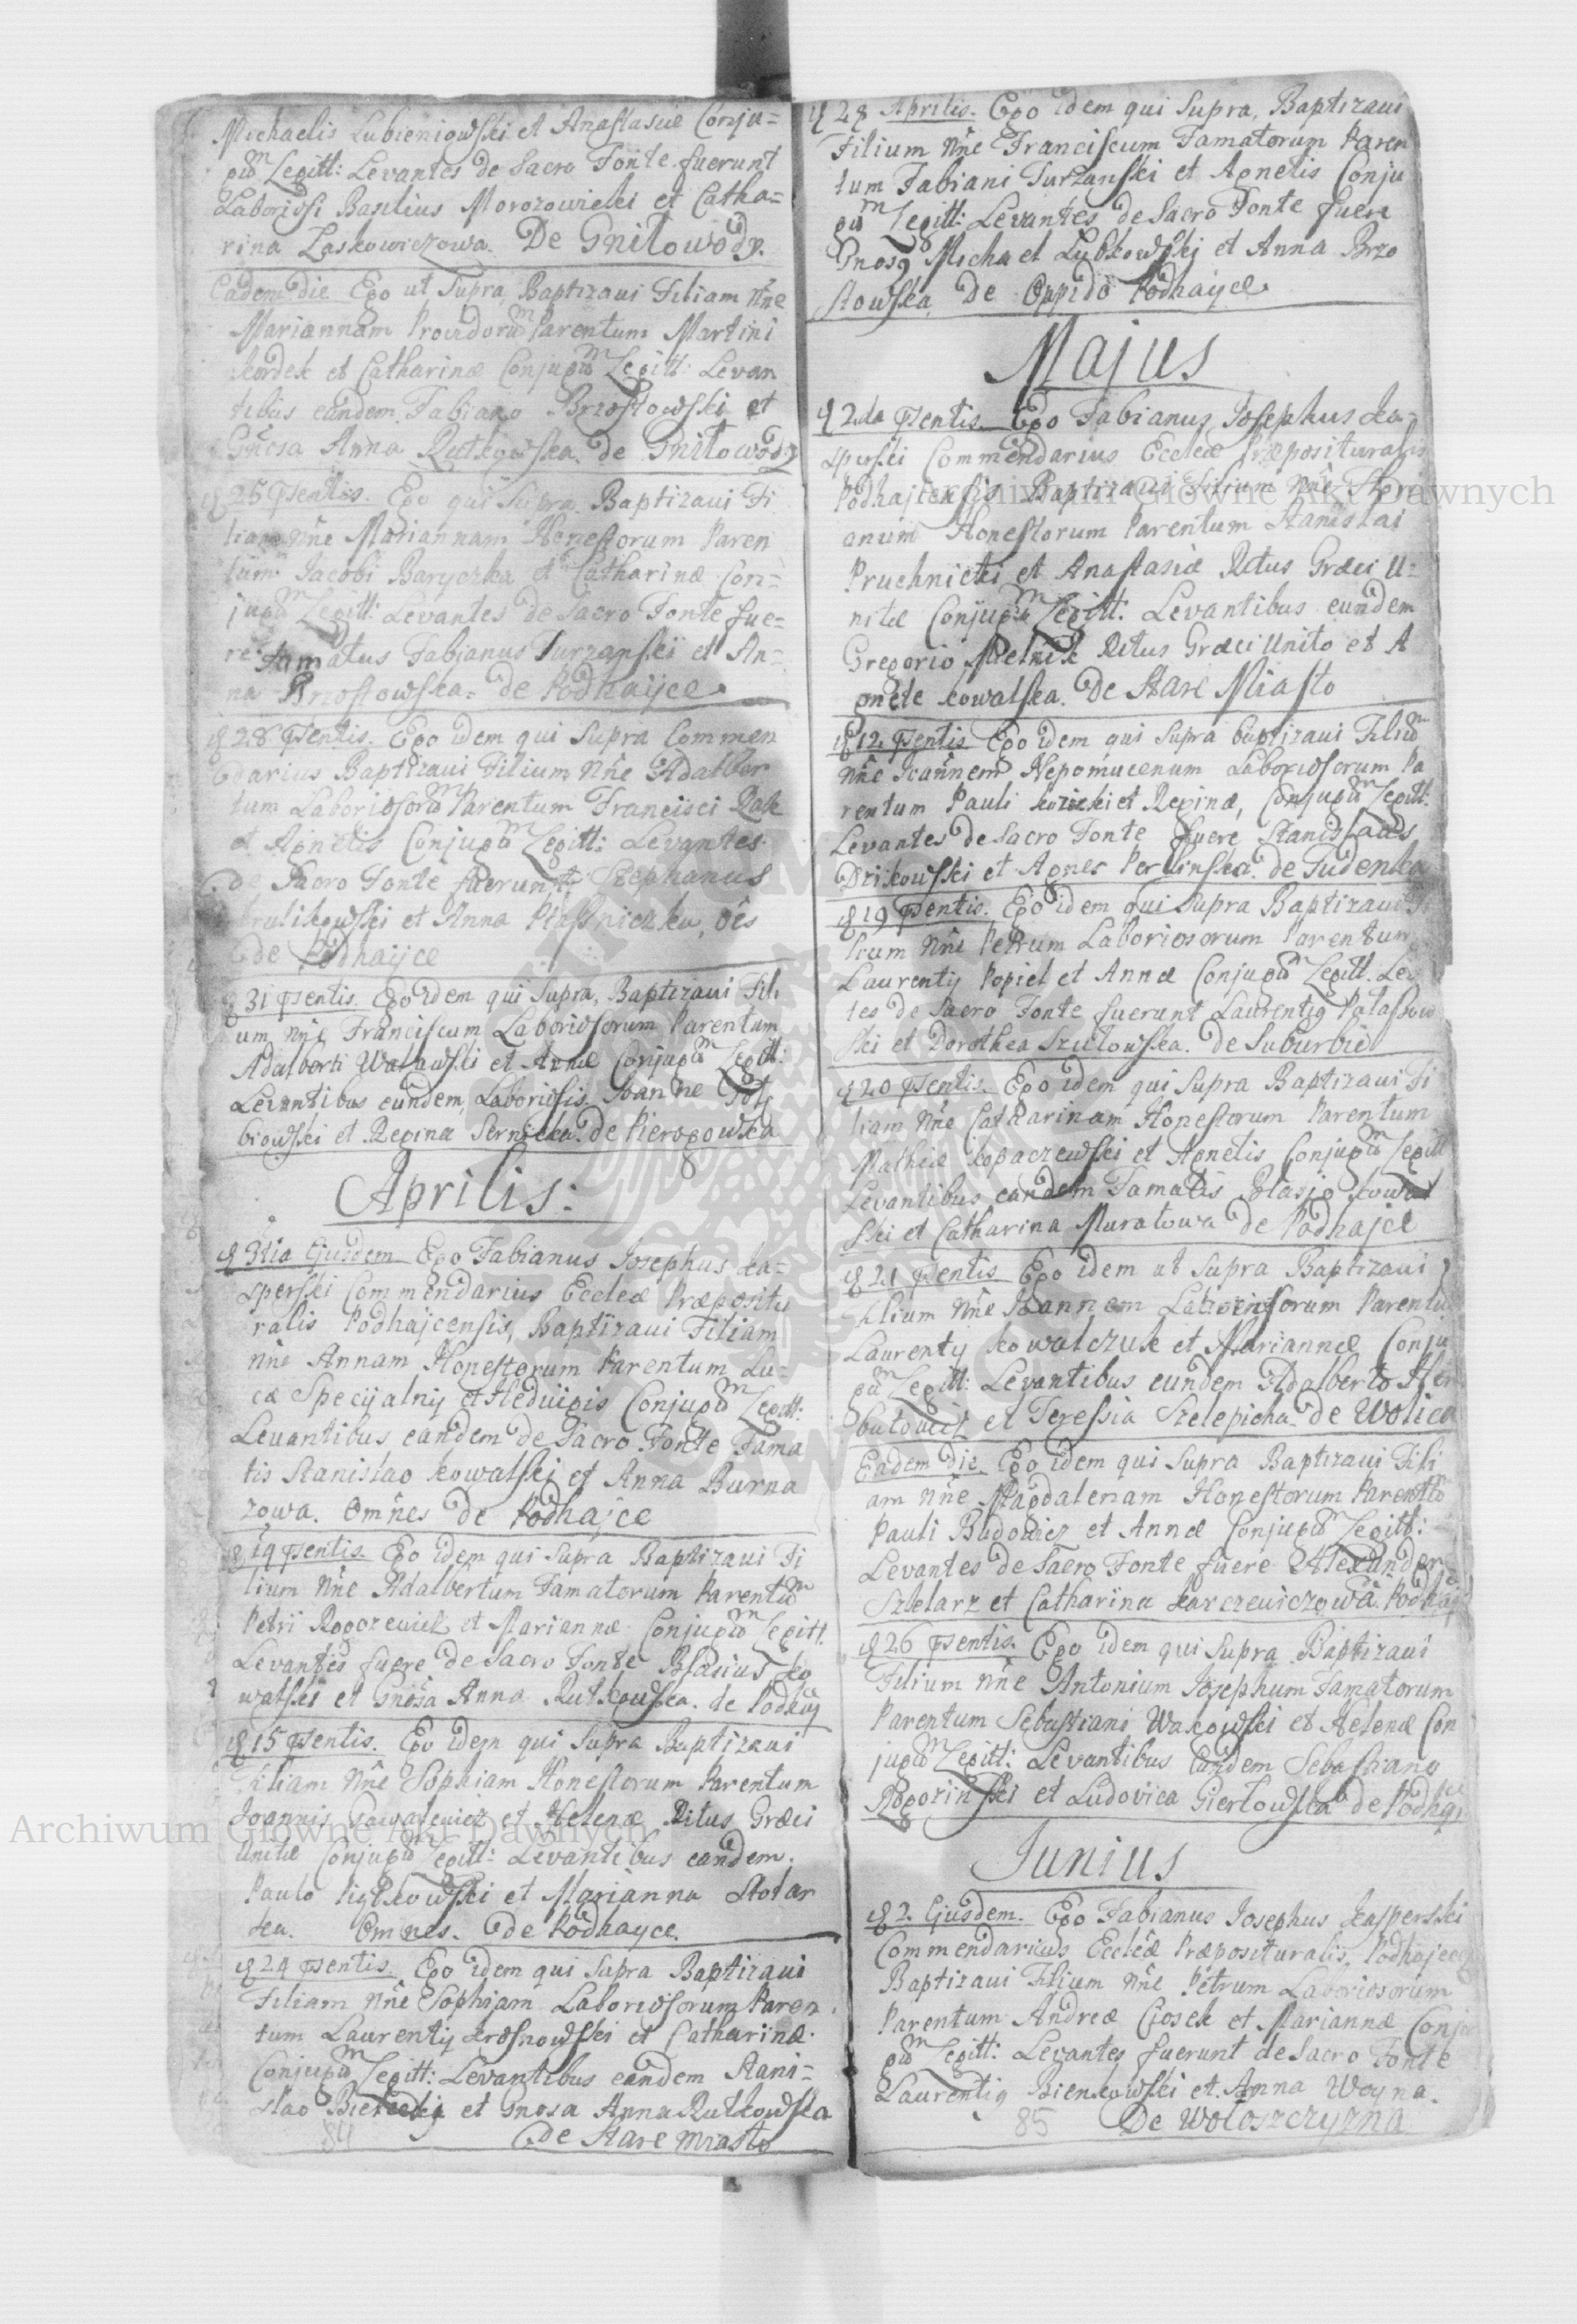 Michaelis Lubieniowski et Anastasiæ Conju=
gum Legitt: Levantes de Sacro Fonte fuerunt
Laboriosi Basilius Morozowicki et Catha=
rina Laskowiczowa. De Gnilowody.
Eadem die Ego ut Supra Baptizavi Filiam nne
Mariannam Providorum Parentum Martini
Kordek et Catharinæ Conjugum Legitt: Levan
tibus eandem Fabiano Brzostowski et
Gnosa Anna Rutkowska de Gnilowody
25 Psentis. Ego qui Supra Baptizavi Fi
liam nne Mariannam Honestorum Paren
tum Jacobi Baryczka et Catharinæ Con=
jugum Legitt: Levantes de Sacro Fonte fue=
re Famatus Fabjanus Turzanski et An=
na Brzostowska= de Podhayce
28 Psentis. Ego idem qui Supra Commen
darius Baptizavi Filium Nne Adalber
tum Laboriosorum Parentum Francisci Rak
et Agnetis Conjugum Legitt: Levantes
de Sacro Fonte fuerunt Stephanus
Krulikowski et Anna Piasniczka, oes
de Podhayce
31 Psentis. Ego idem qui Supra, Baptizavi Fili
um nne Franciscum Laboriosorum Parentum
Adalberti Walawski et Annæ Conjugum Legitt:
Levantibus eundem, Laboriosis Joanne Goł
biowski et Regina Sernicka. de Pierogowska
Aprilis:
3tia Ejusdem Ego Fabianus Josephus Ka=
sperski Commendarius Eccleæ Præpositu
ralis Podhajcensis, Baptizavi Filiam
nne Annam Honestorum Parentum Lu=
cæ Specijalnij et Hedvigis Conjugum Legitt:
Levantibus eandem de Sacro Fonte Fama
tis Stanislao Kowalski et Anna Burna
zowa. Omnes de Podhajce
14 Psentis. Ego idem qui Supra Baptizavi Fi
lium Nne Adalbertum Famatorum Parentum
Petri Rogozewicz et Mariannæ Conjugum Legitt.
Levantes fuere de Sacro Fonte Blasius Ko
walski et Gnosa Anna Rutkowska. de Podhaj
15 Psentis. Ego idem qui Supra Baptizavi
Filiam Nne Sophiam Honestorum Parentum
Joannis Gawalewicz et Helenæ Ritus Græci
Unitæ Conjugum Legitt: Levantibus eandem.
Paulo Piątkowski et Marianna Stolar
ka. Omnes. de Podhayce.
24 Psentis. Ego idem qui Supra Baptizavi
Filiam Nne Sophiam Laboriosorum Paren
tum Laurentij Krosnowski et Catharinæ.
Conjugum Legitt: Levantibus eandem Stani=
slao Bielecki et Gnosa Anna Rutkowska
84 de Stare Miasto
28 Aprilis. Ego idem qui Supra, Baptizavi
Filium Nne Franciscum Famatorum Paren
tum Fabiani Turzanski et Agnetis Conju
gum Legitt: Levantes de Sacro Fonte fuere
Gnosq Michael Lubkowski et Anna Brzo
stowska, De Oppido Podhayce.
Majus
2da Psentis. Ego Fabianus Josephus Ka=
sperski Commendarius Eccleæ Præposituralis
Podhajcensis Baptizavi Filium Nne Flori
anum Honestorum Parentum Stanislai
Pruchnicki et Anastasiæ Ritus Græci U=
nitæ Conjugum Legitt: Levantibus eundem
Gregorio Melnik Ritus Græci Unito et A
gnete Kowalska. De Stare Miasto
12. Psentis Ego idem qui Supra Baptizavi Filium
Nne Joannem Nepomucenum Laboriosorum Pa
rentum Pauli Kozicki et Reginæ, Conjugum Legitt:
Levantes de Sacro Fonte fuere Stanislaus
Dzikowski et Agnes Perlinska. de Siudenka
19 Psentis. Ego idem qui Supra Baptizavi Fi
lium Nne Petrum Laboriosorum Parentum
Laurentij Popiel et Annæ Conjugum Legitt. Levan
tes de Sacro Fonte fuerunt Laurentiq Palaszow
ski et Dorothea Szulowska. de Suburbio
20 Psentis. Ego idem qui Supra Baptizavi Fi
liam Nne Catharinam Honestorum Parentum
Mathiæ Kopaczewski et Agnetis Conjugum Legitt
Levantibus eandem Famatis Blasio Kowal
ski et Catharina Muratowa de Podhajce
21 Psentis Ego idem ut Supra Baptizavi
Filium Nne Joannem Laboriosorum Parentum
Laurentij Kowalczuk et Mariannæ Conju
gum Legitt: Levantibus eundem Adalberto Her
butowicz et Teressia Szelepicha. de Wolica
Eadem Die. Ego idem qui Supra Baptizavi Fili
am nne Magdalenam Honestorum Parentum
Pauli Budowicz et Annæ Conjugum Legitt:
Levantes de Sacro Fonte fuere Alexander
Szklarz et Catharina Karczewiczowa. Podhaj
26 Psentis. Ego idem qui Supra Baptizavi
Filium Nne Antonium Josephum Famatorum
Parentum Sebastiani Wakowski et Helenæ Con
jugum Legitt: Levantibus Eundem Sebastiano
Rogozinski et Ludovica Giertowska de Podhaj
Junius
2. Ejusdem. Ego Fabianus Josephus Kasperski
Commendarius Eccleæ Præposituralis, Podhajcen
Baptizavi Filium Nne Petrum Laboriosorum
Parentum Andreæ Ciosek et Mariannæ Conju
gum Legitt: Levantes fuerunt de Sacro Fonte
Laurentiq Bienkowski et Anna Woyna.
85 De Wołoszczyzna
Archiwum Główne Akt Dawnych
Archiwum Główne Akt Dawnych